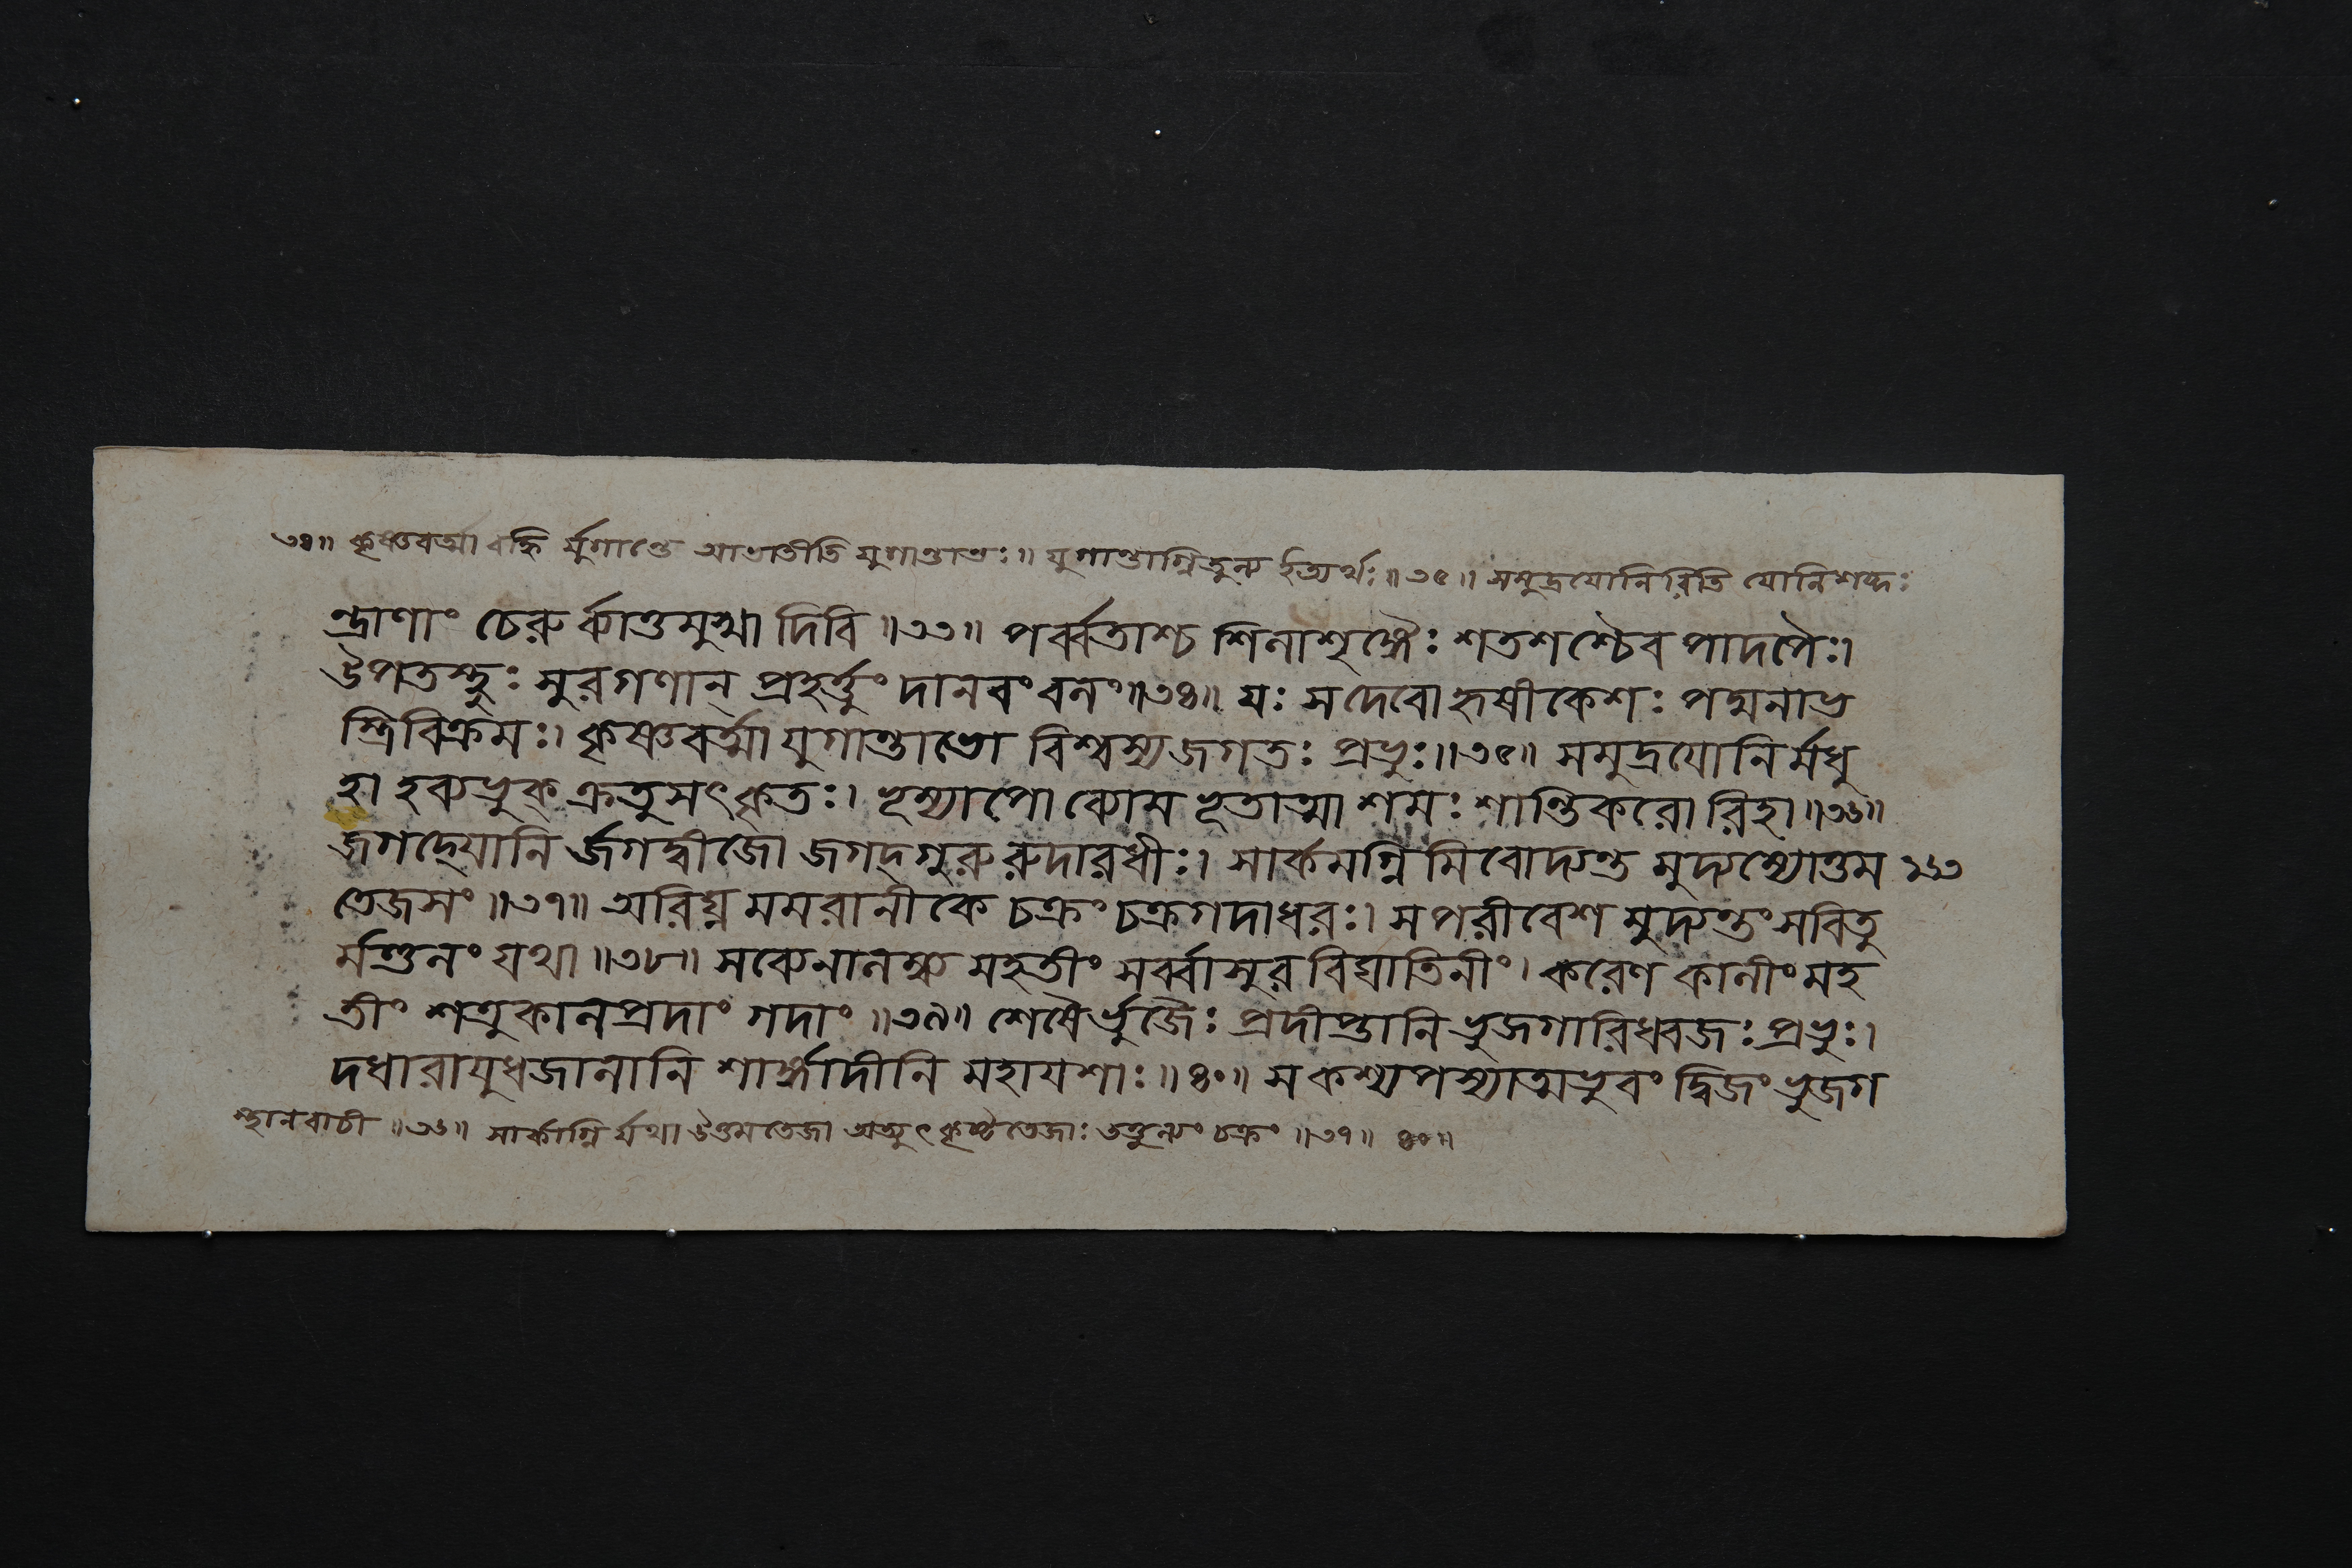 ৩৪॥ কৃষ্ণবর্ত্মা বহ্নি র্যুগান্তে আভাতীতি যুগান্তাভঃ॥ যুগান্তাগ্নিতুল্য ইত্যর্থঃ॥৩৫॥ সমুদ্রযোনিরিতি যোনিশব্দঃ
ন্দ্রাণাং চেরু র্ব্যাত্তমুখা দিবি॥৩৩॥ পর্ব্বতাশ্চ শিলাশৃঙ্গৈঃ শতশশ্চৈব পাদপৈঃ।
উপতস্থুঃ সুরগণান্ প্রহর্ত্তুং দানবং বলং॥৩৪॥ যঃ স দেবো হৃষীকেশঃ পদ্মনাভ
স্ত্রিবিক্রমঃ। কৃষ্ণবর্ত্মা যুগান্তাভো বিশ্বস্য জগতঃ প্রভুঃ॥৩৫॥ সমুদ্রযোনির্মধু
হা হব্যভুক্ ক্রতুসৎকৃতঃ। ভূম্যাপো ব্যোম ভূতাত্মা শমঃ শান্তিকরোরিহা॥৩৬॥
জগদ্যোনি র্জগদ্বীজো জগদ্গুরুরুদারধীঃ। সার্কমগ্নিমিবোদ্যন্ত মুদ্যম্যোত্তম ২৮৩
তেজসং॥৩৭॥ অরিঘ্ন মমরানীকে চক্রং চক্রগদাধরঃ। সপরীবেশ মুদ্যন্তং সবিতু
র্মণ্ডলং যথা॥৩৮॥ সব্যেনালম্ব্য মহতীং সর্ব্বাসুর বিঘাতিনীং। করেণ কালীং মহ
তীং শত্রুকালপ্রদাং গদাং॥৩৯॥ শেষৈর্ভুজৈঃ প্রদীপ্তানি ভুজগারিধ্বজঃ প্রভুঃ।
দধারাযুধজালানি শার্ঙ্গাদীনি মহাযশাঃ॥৪০॥ স কশ্যপস্যাত্মভুবং দ্বিজং ভুজগ
স্থানবাচী॥৩৬॥ সার্কাগ্নি র্যথা উত্তমতেজা অত্যুৎকৃষ্টতেজাঃ তত্তুল্যং চক্রং॥৩৭॥ ৪০॥